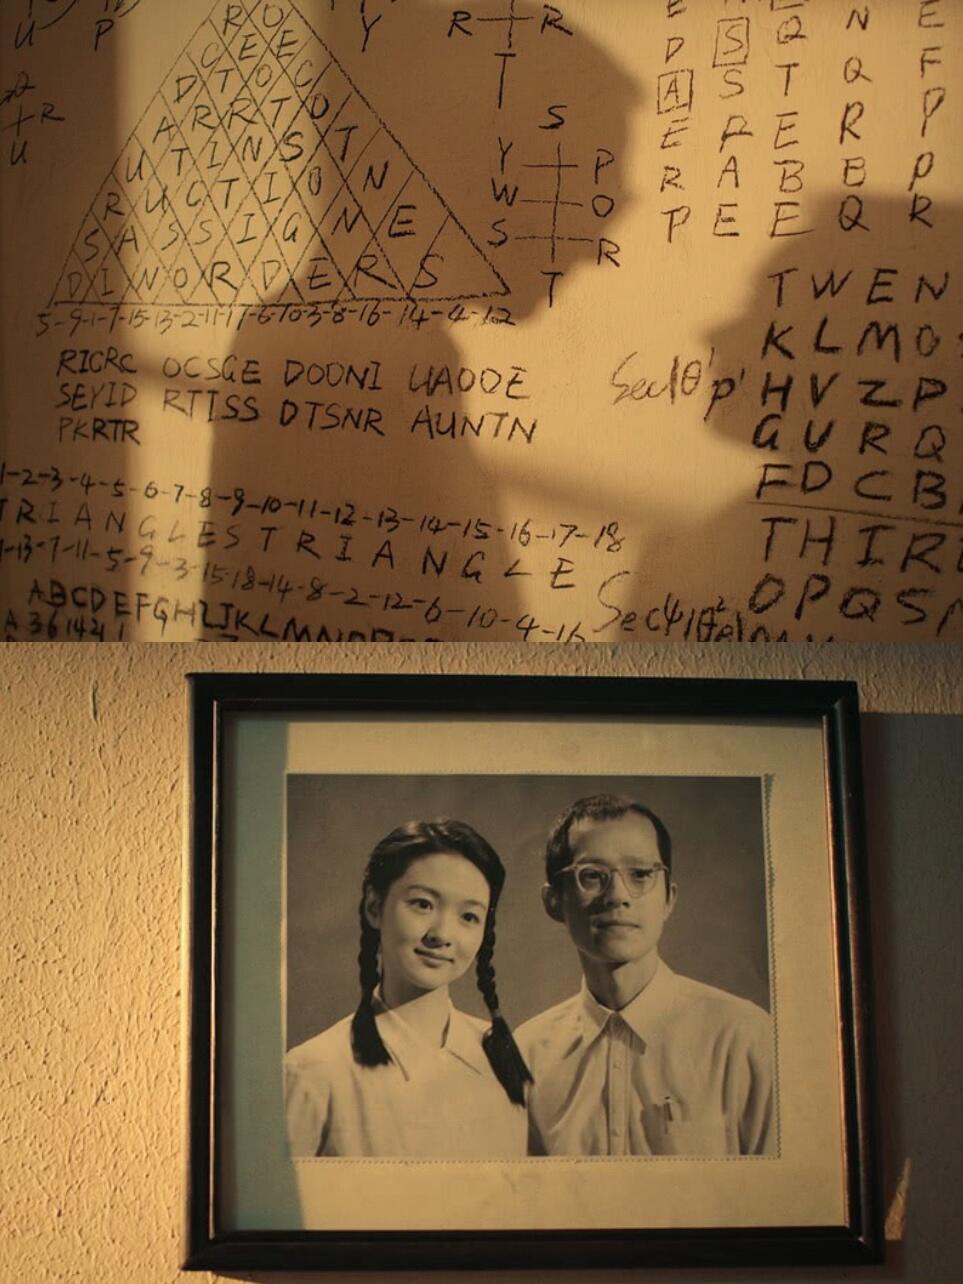 U P Y R R
R O
C E E
D T O C
A R R T O
U T I N S T
R U C T I O N
S A S S I G N E
D I N O R D E R S
5-9-1-7-15-13-2-11-17-6-10-3-8-16-14-4-12
Q
R
U
T
S
Y P
W O
S R
T
D S Q N E
A S T Q F
E R E R P
R A B B P
P E E Q R
RICRC OCSGE DOONI UAOOE
SEYID RTTSS DTSNR AUNTN
PKRTR
1-2-3-4-5-6-7-8-9-10-11-12-13-14-15-16-17-18
TRIANGLESTRIANGLE
1-13-7-11-5-9-3-15-18-14-8-2-12-6-10-4-16
ABCDEFGHIJKLMN
A 3 6 14 21 1
TWEN
KLMO
HVZP
GURQ
FDCB
THIR
OPQS